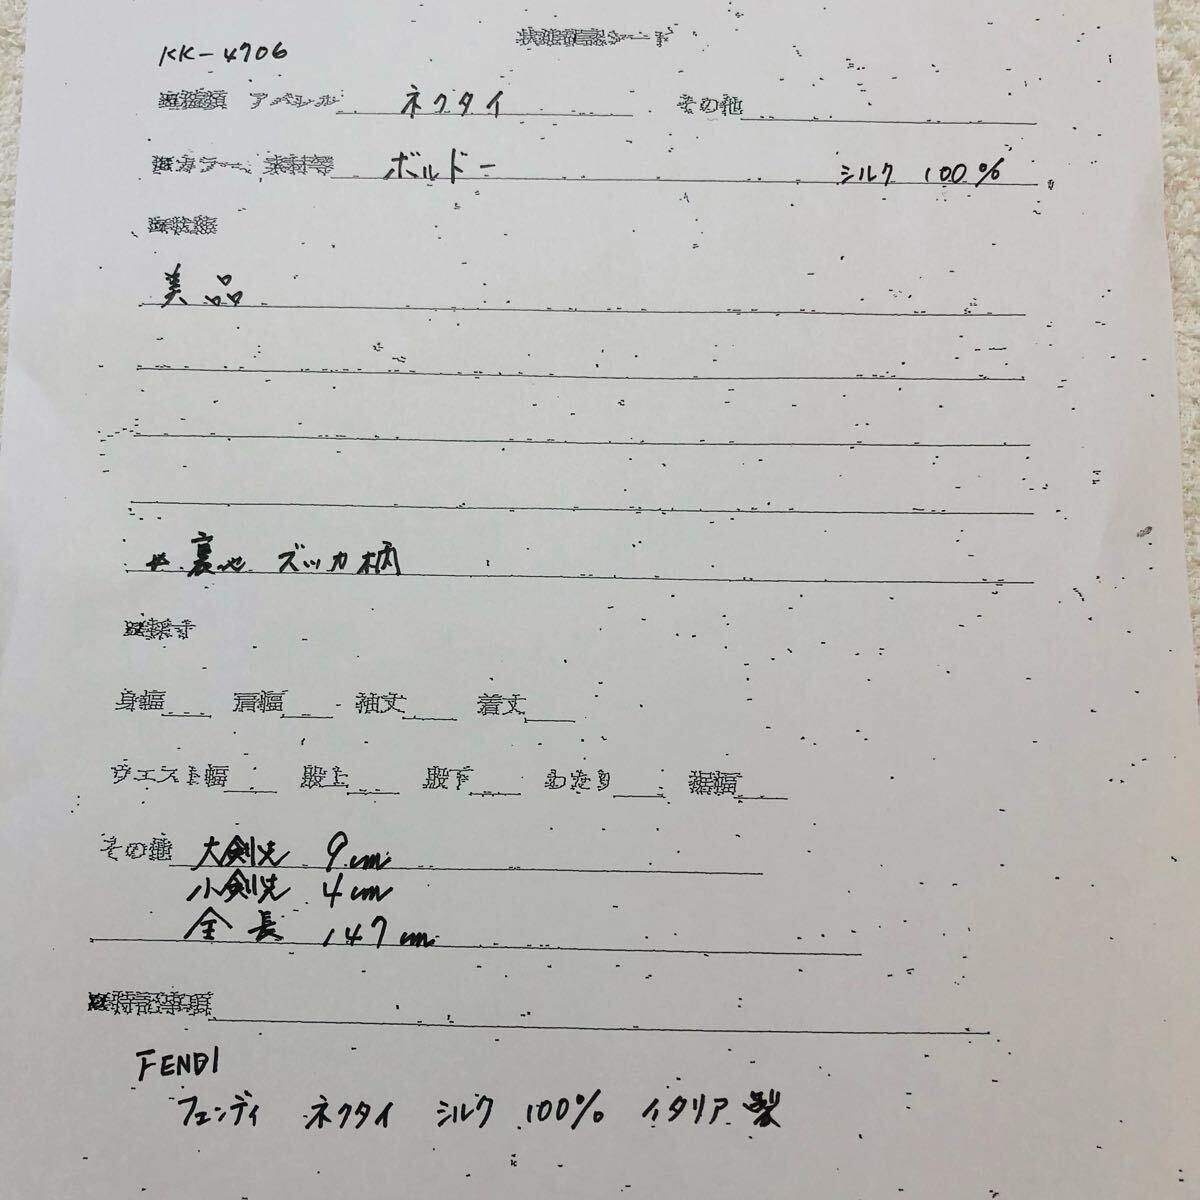 状態確認シート
KK-4706
※種類 アパレル ネクタイ その他
※カラー、素材等 ボルドー シルク 100%
※状態
美品
* 裏地 ズッカ柄
※採寸
身幅 肩幅 袖丈 着丈
ウエスト幅 股上 股下 わたり 裾幅
その他 大剣先 9cm
小剣先 4cm
全長 147cm
※特記事項
FENDI
フェンディ ネクタイ シルク 100% イタリア製